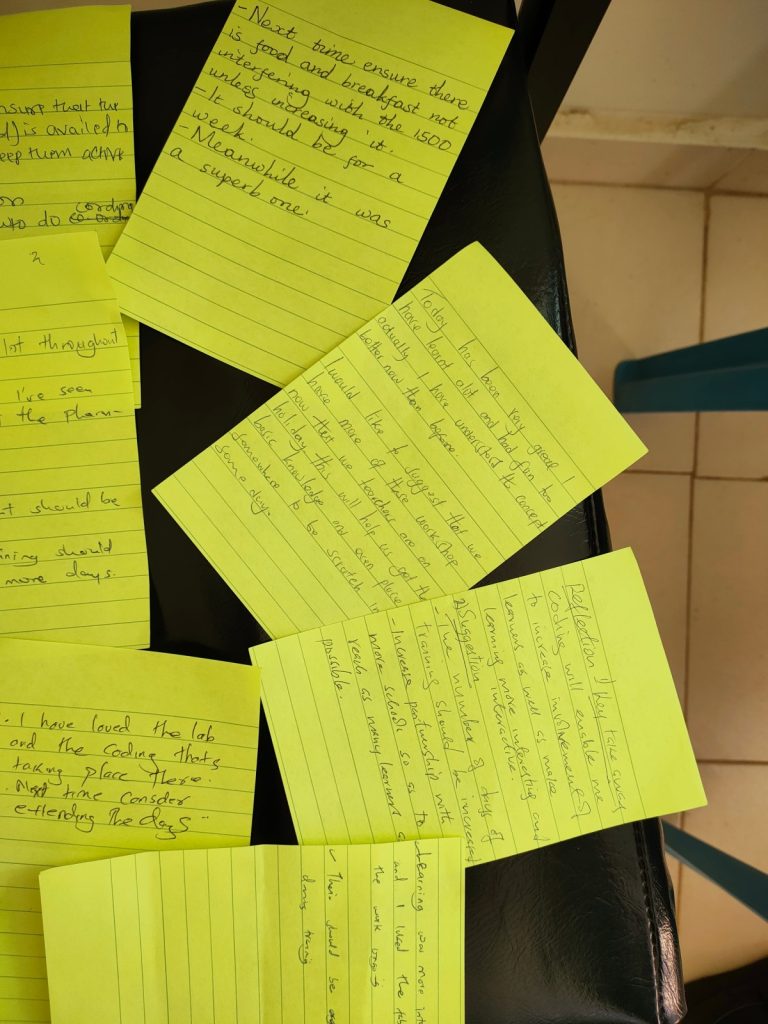 nsure that the
is availed to
eep them active
to do co-ordi cording
- Next time ensure there
is food and breakfast not
interfering with the 1500
unless increasing it.
- It should be for a
week.
- Meanwhile it was
a superb one.
lot throughout
I've seen
the plann-
t should be
ining should
more days.
Today has been very great I
have learnt alot and had fun too
actually I have understood the concept
better now than before.
I would like to suggest that we
have more of these workshop
now that we teachers are on
holiday this will help us get the
basic knowledge and even place
somewhere to be scratch in
some days.
Reflection / Key take aways
coding will enable me
to increase involvement of
learners as well as make
learning more interesting and
interactive.
2) Suggestion
- The number of days of
training should be increased
- Increase partnership with
more schools so as to
reach as many learners as
possible.
. I have loved the lab
and the coding thats
taking place there.
. Next time consider
extending the days
Learning was more inte
and I liked the tab
the work
- There should be
during training